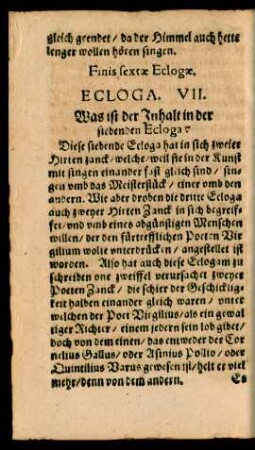 gleich geendet / da der Himmel auch hette
lenger wollen hören singen.
Finis sextæ Eclogæ.
ECLOGA. VII.
Was ist der Inhalt in der
siebenden Ecloga?
Diese siebende Ecloga hat in sich zweier
Hirten zanck / welche / weil sie in der Kunst
mit singen einander fast gleich sind / sin-
gen vmb das Meisterstück / einer vmb den
andern. Wie aber droben die dritte Ecloga
auch zweyer Hirten Zanck in sich begreif-
fet / vnd vmb eines abgünstigen Menschen
willen / der den fürtrefflichen Poeten Vir
gilium wolte vnterdrücken / angestellet ist
worden. Also hat auch diese Eclogam zu
schreiben one zweiffel verursachet zweyer
Poeten Zanck / die schier der Geschicklig-
keit halben einander gleich waren / vnter
welchen der Poet Virgilius / als ein gewal
tiger Richter / einem jedern sein lob gibet /
doch von dem einen / das entweder der Cor
nelius Gallus / oder Asinius Pollio / oder
Quintilius Varus gewesen ist / helt er viel
mehr / denn von dem andern. Es